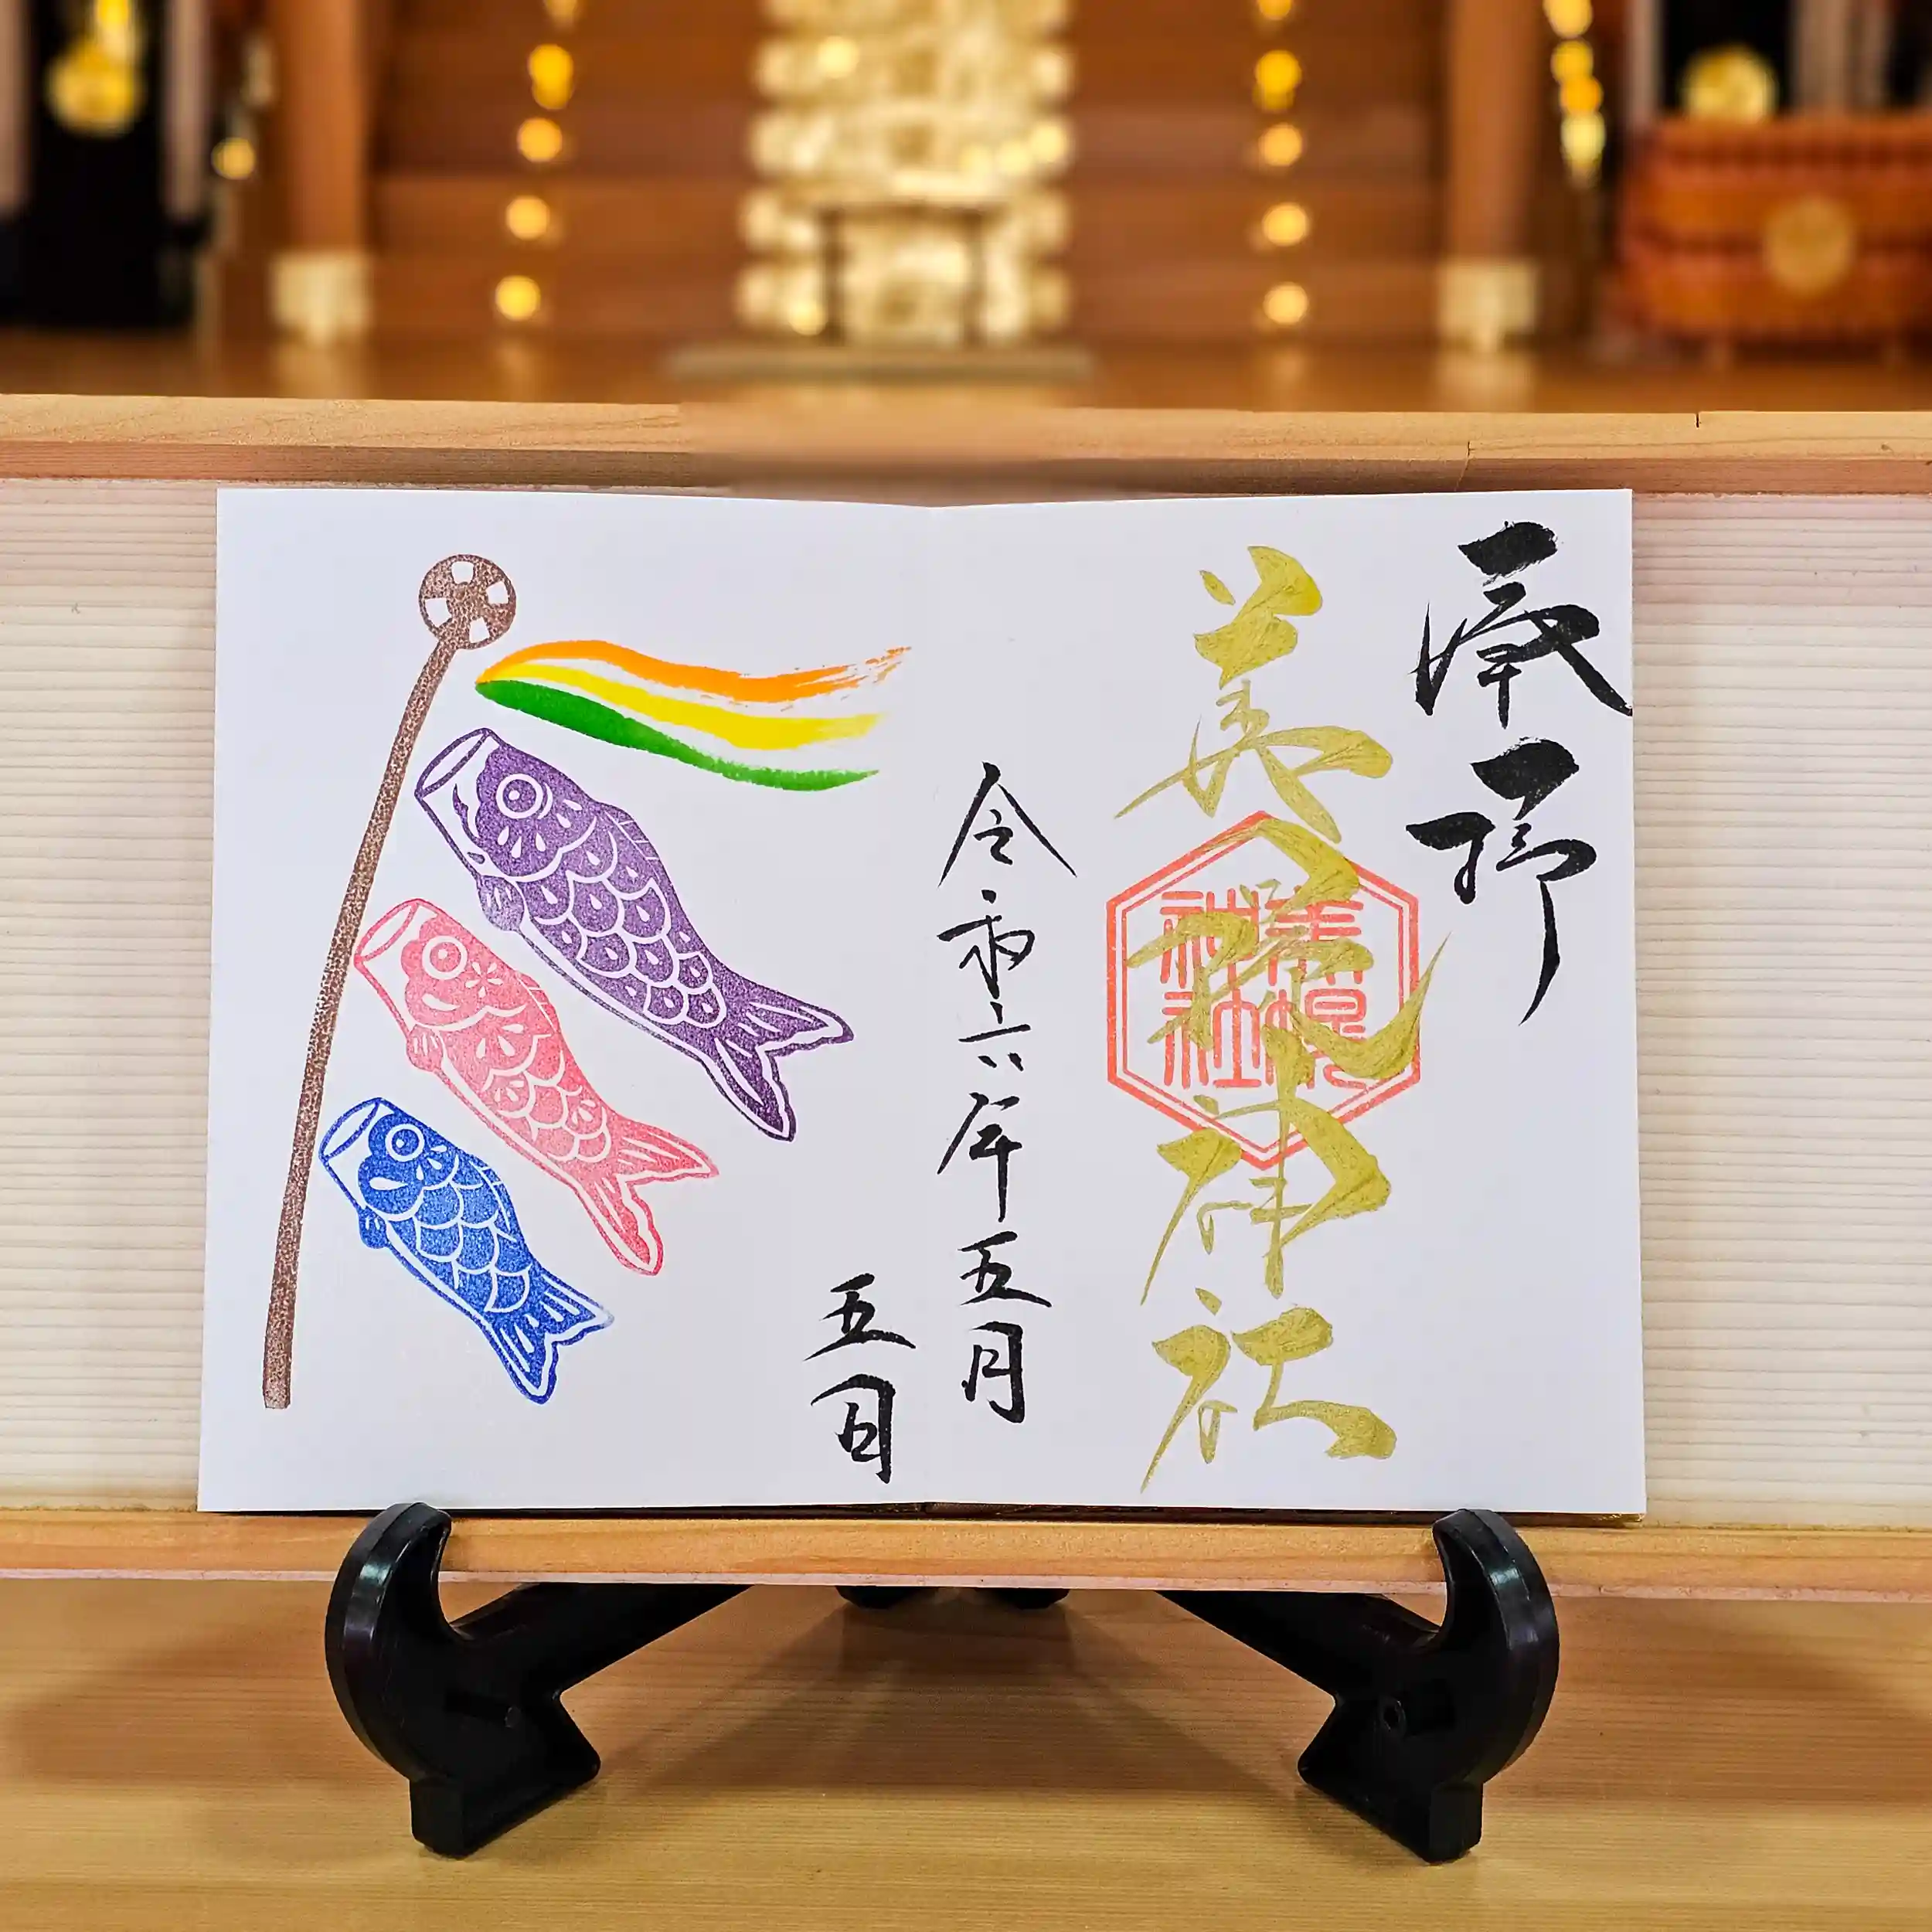 奉拝
美幌神社
美幌
神社
令和六年五月
五日